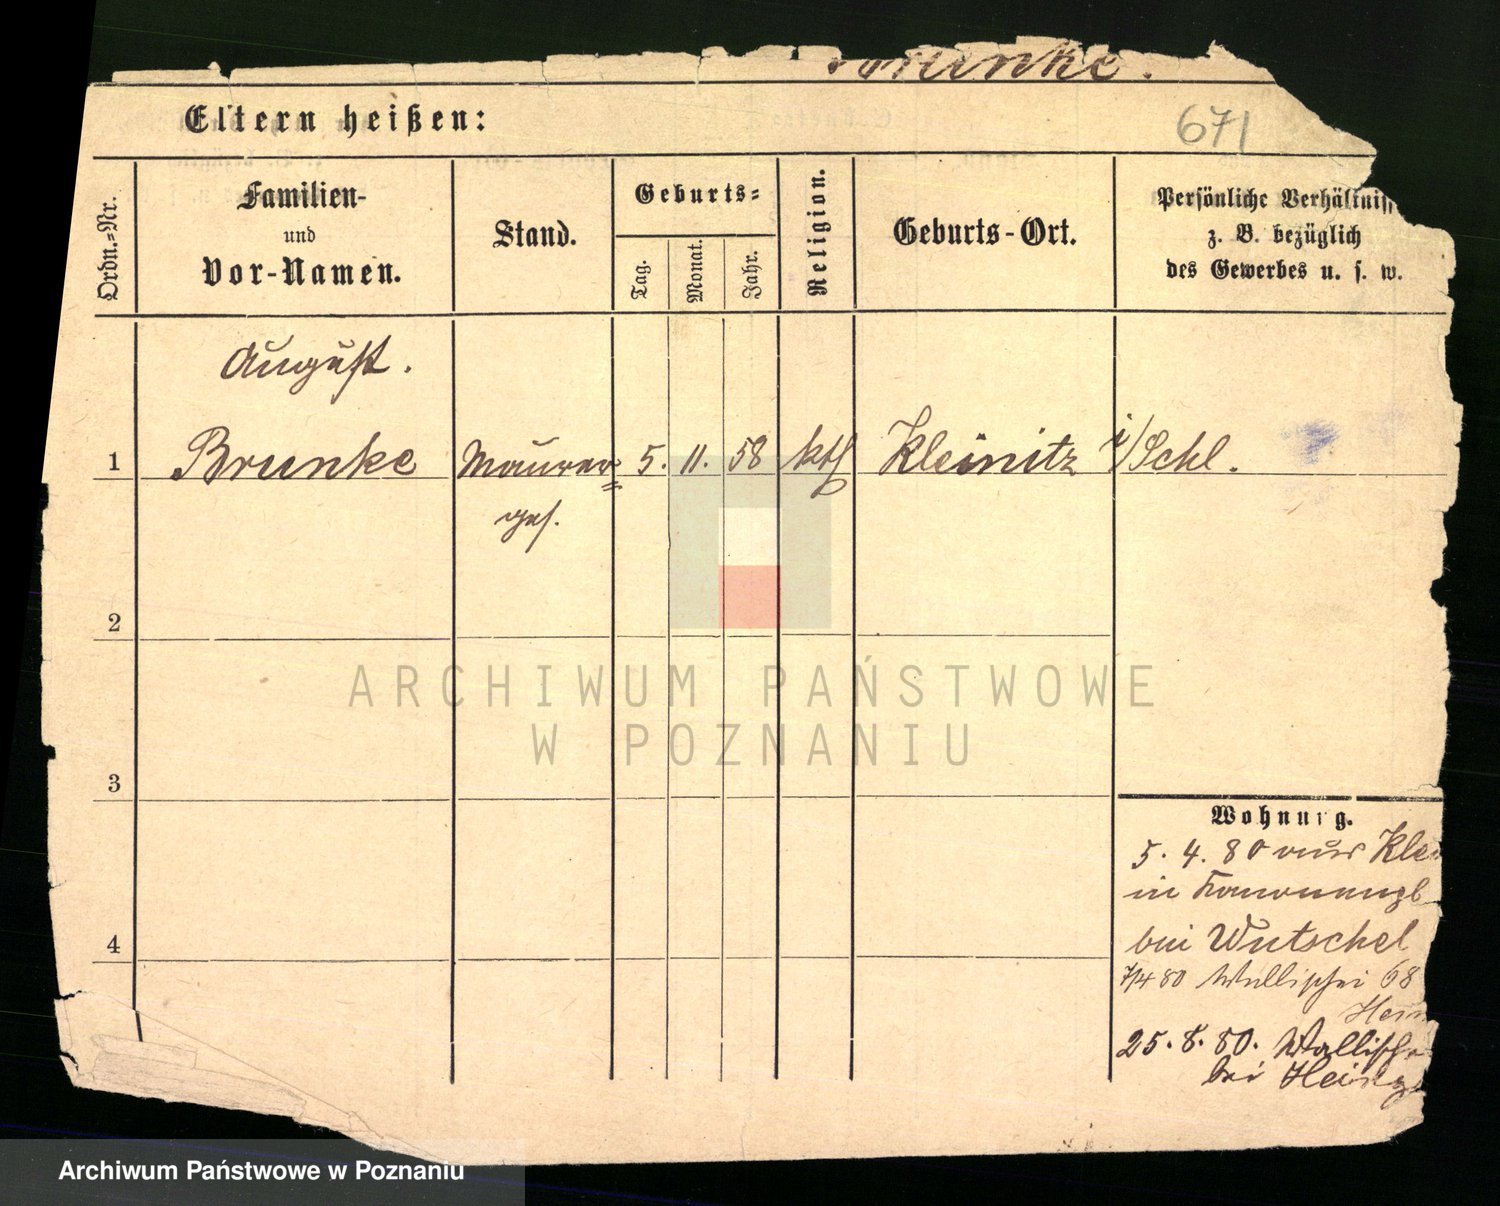 Brunke.
Eltern heißen:
671
Ordn.-Nr.
Familien-
und
Vor-Namen.
Stand.
Geburts-
Tag.
Monat.
Jahr.
Religion.
Geburts-Ort.
Persönliche Verhältniss
z. B. bezüglich
des Gewerbes u. s. w.
August.
1 Brunke Maurer 5. 11. 58 kth Kleinitz i/Schl.
ges.
2
3
4
Wohnung.
5. 4. 80 aus Klei
in
bei Wutschel
7/4 80 Wallischei 68
Hein
25. 8. 80. Wallische
bei Heinz
ARCHIWUM PAŃSTWOWE
W POZNANIU
Archiwum Państwowe w Poznaniu